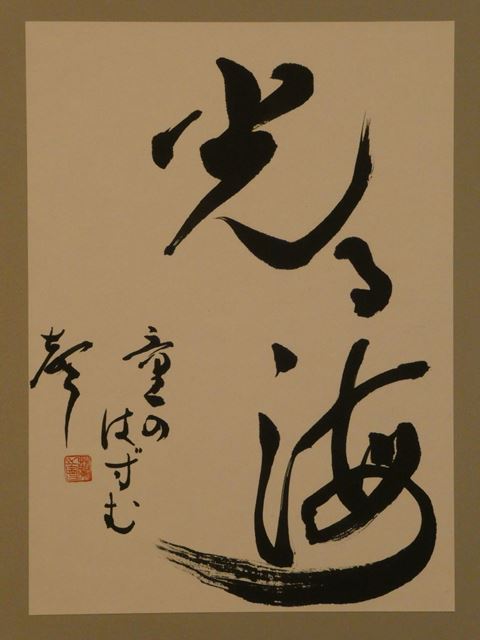 光る海
童の
はずむ
聲